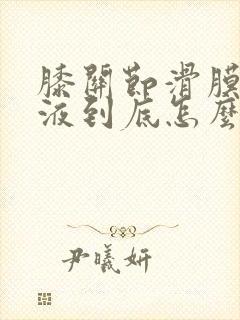 膝關節滑膜
液到底怎麼
尹曦妍